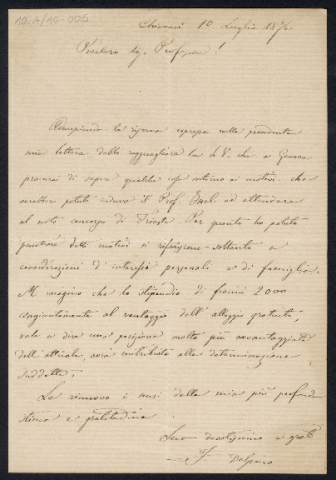 10.A/10-005
Chiavari 1º Luglio 187
Preclaro Sig. Professore!
Riempiendo la riserva espressa nella precedente
mia lettera debbo ragguagliare la S.V. che a Genova
procurai di sapere qualche cosa intorno ai motivi che
avrebber potuto indurre il Prof. ad attendere
al noto concorso di Trieste. Per quanto ho potuto
penetrare detti motivi si riferiscono soltanto a
considerazioni d'interessi personali e di famiglia.
M'immagino che lo stipendio di fiorini 2000
congiuntamente al vantaggio dell'alloggio gratuito,
vale a dire una posizione molto più avvantaggiata
dell'attuale, avrà contribuito alla determinazione
suddetta.
Le rinnovo i sensi della mia più profonda
stima e gratitudine
Suo devotissimo e
F. Delpino